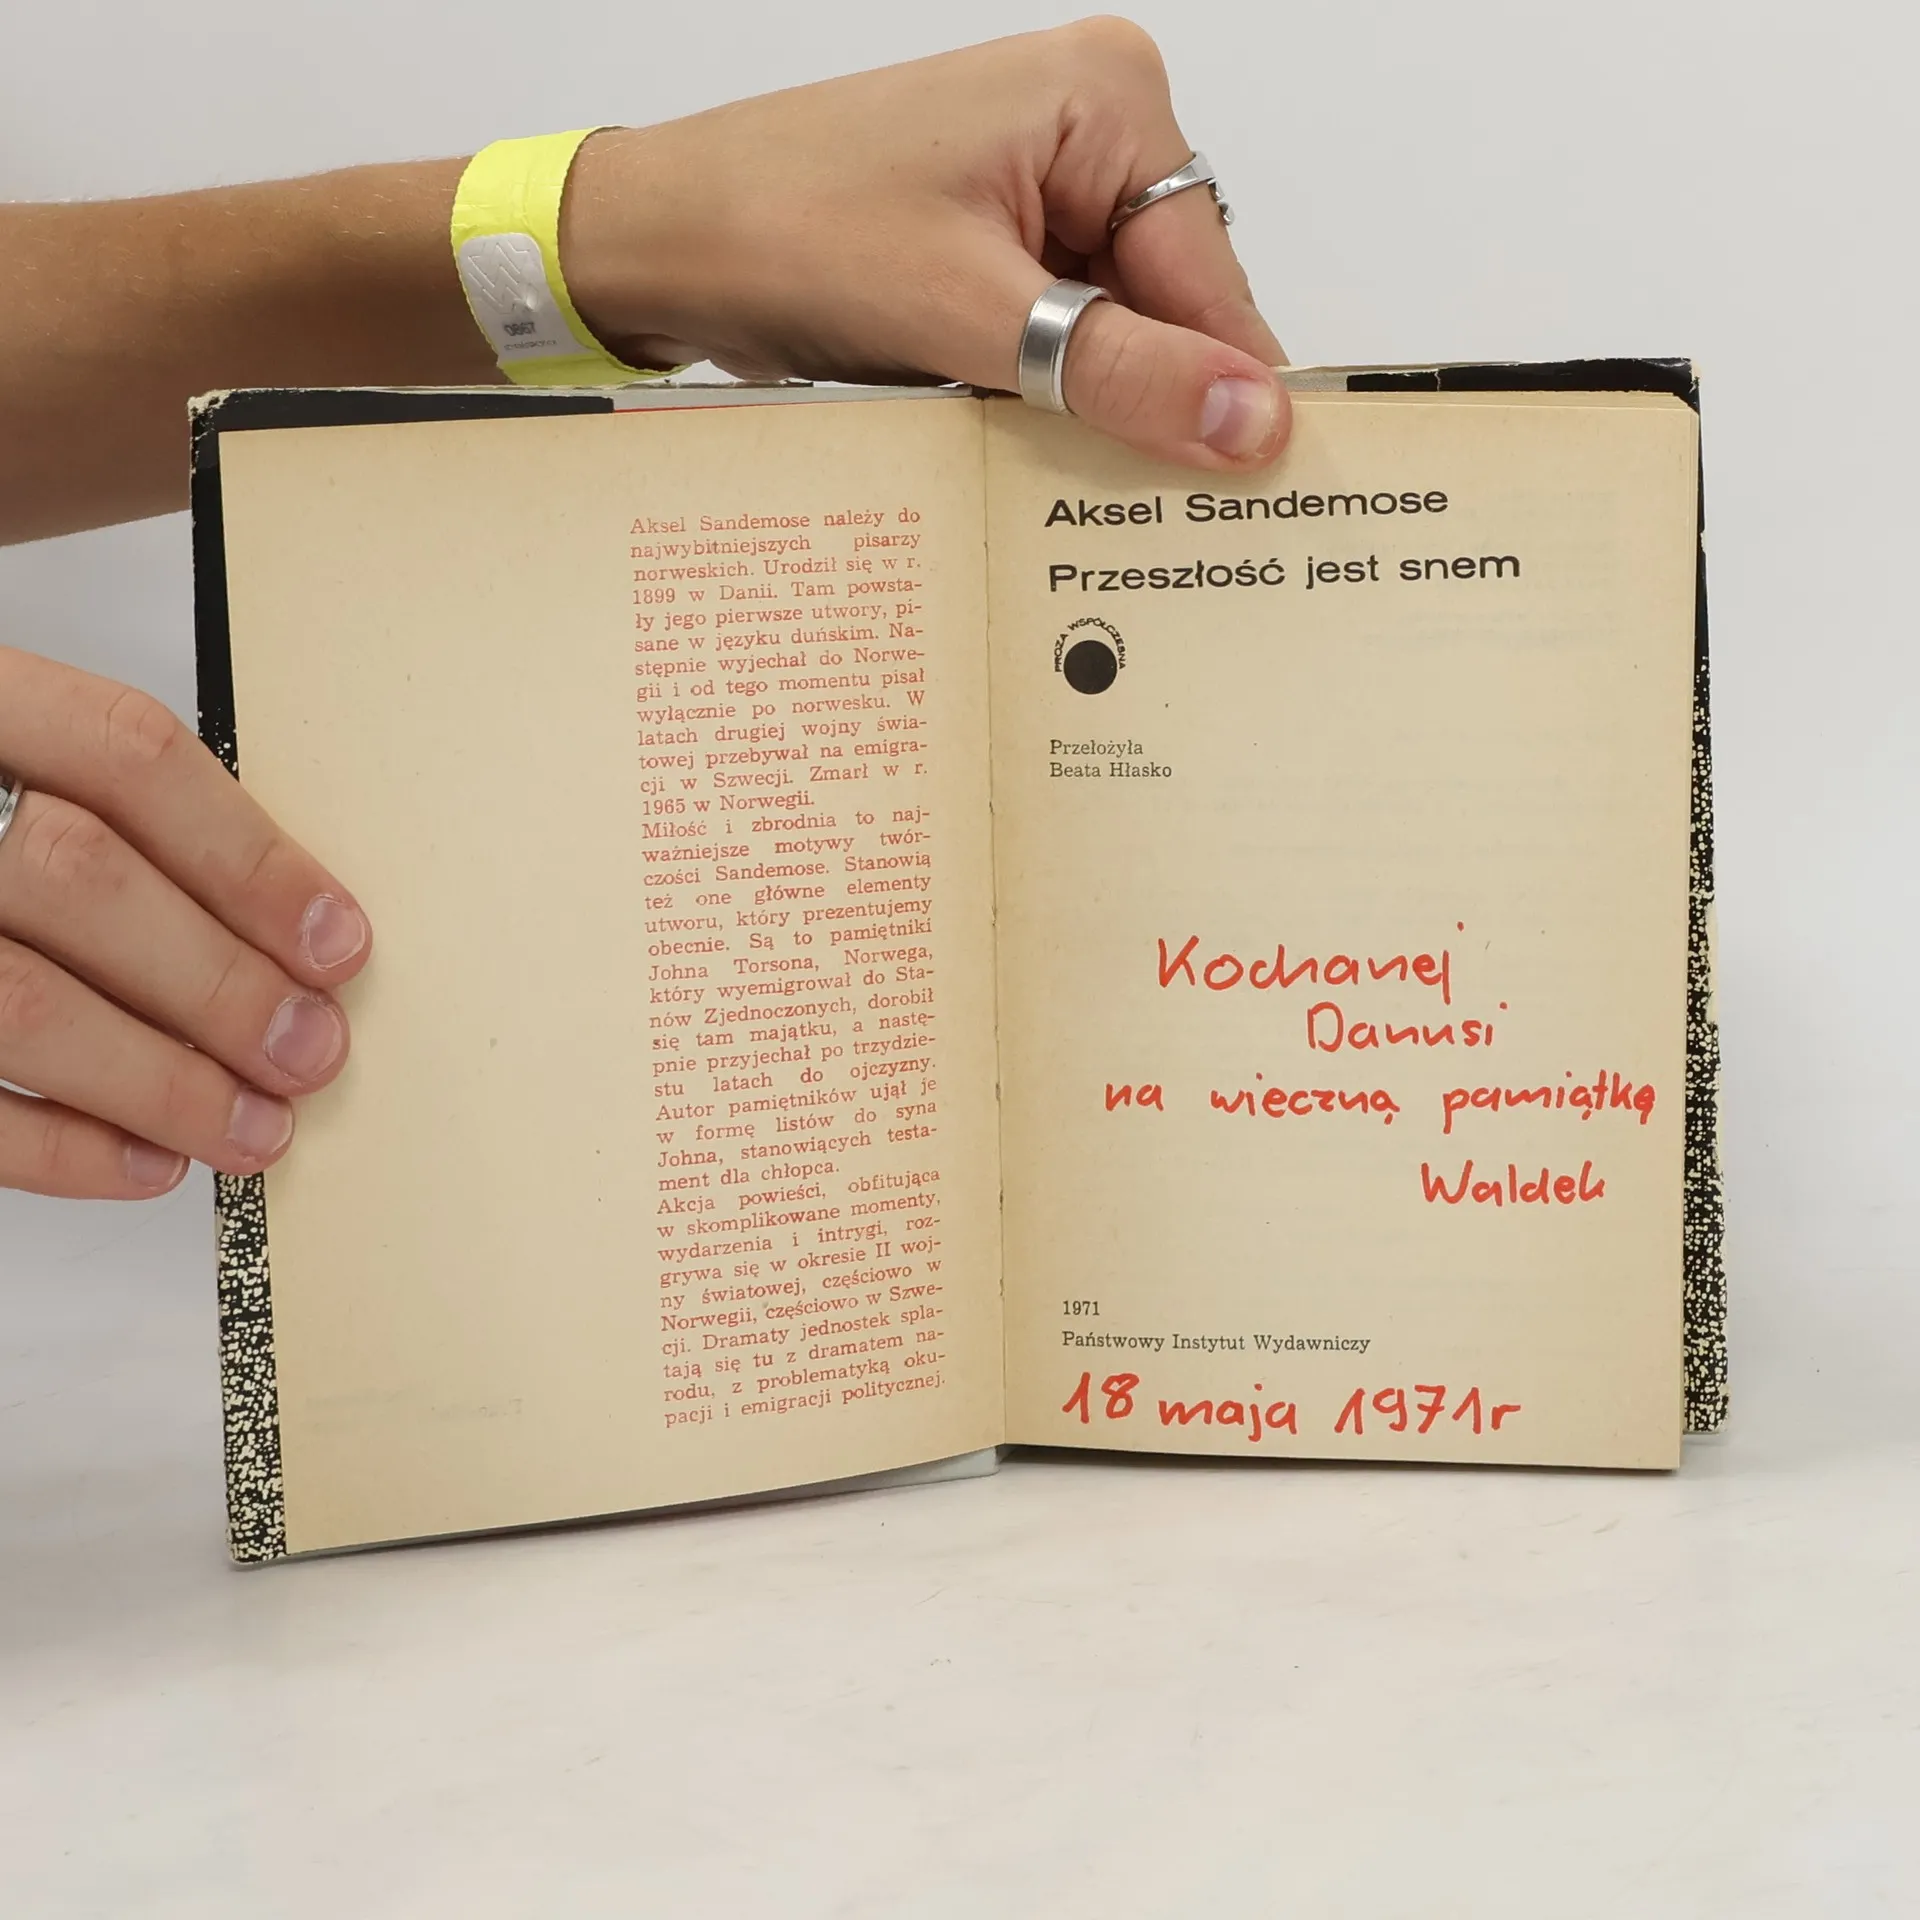 0867
Aksel Sandemose należy do
najwybitniejszych pisarzy
norweskich. Urodził się w r.
1899 w Danii. Tam powsta-
ły jego pierwsze utwory, pi-
sane w języku duńskim. Na-
stępnie wyjechał do Norwe-
gii i od tego momentu pisał
wyłącznie po norwesku. W
latach drugiej wojny świa-
towej przebywał na emigra-
cji w Szwecji. Zmarł w r.
1965 w Norwegii.
Miłość i zbrodnia to naj-
ważniejsze motywy twór-
czości Sandemose. Stanowią
też one główne elementy
utworu, który prezentujemy
obecnie. Są to pamiętniki
Johna Torsona, Norwega,
który wyemigrował do Sta-
nów Zjednoczonych, dorobił
się tam majątku, a nastę-
pnie przyjechał po trzydzie-
stu latach do ojczyzny.
Autor pamiętników ujął je
w formę listów do syna
Johna, stanowiących testa-
ment dla chłopca.
Akcja powieści, obfitująca
w skomplikowane momenty,
wydarzenia i intrygi, roz-
grywa się w okresie II woj-
ny światowej, częściowo w
Norwegii, częściowo w Szwe-
cji. Dramaty jednostek spla-
tają się tu z dramatem na-
rodu, z problematyką oku-
pacji i emigracji politycznej.
Aksel Sandemose
Przeszłość jest snem
PROZA WSPÓŁCZESNA
Przełożyła
Beata Hłasko
Kochanej
Danusi
na wieczną pamiątkę
Waldek
1971
Państwowy Instytut Wydawniczy
18 maja 1971r